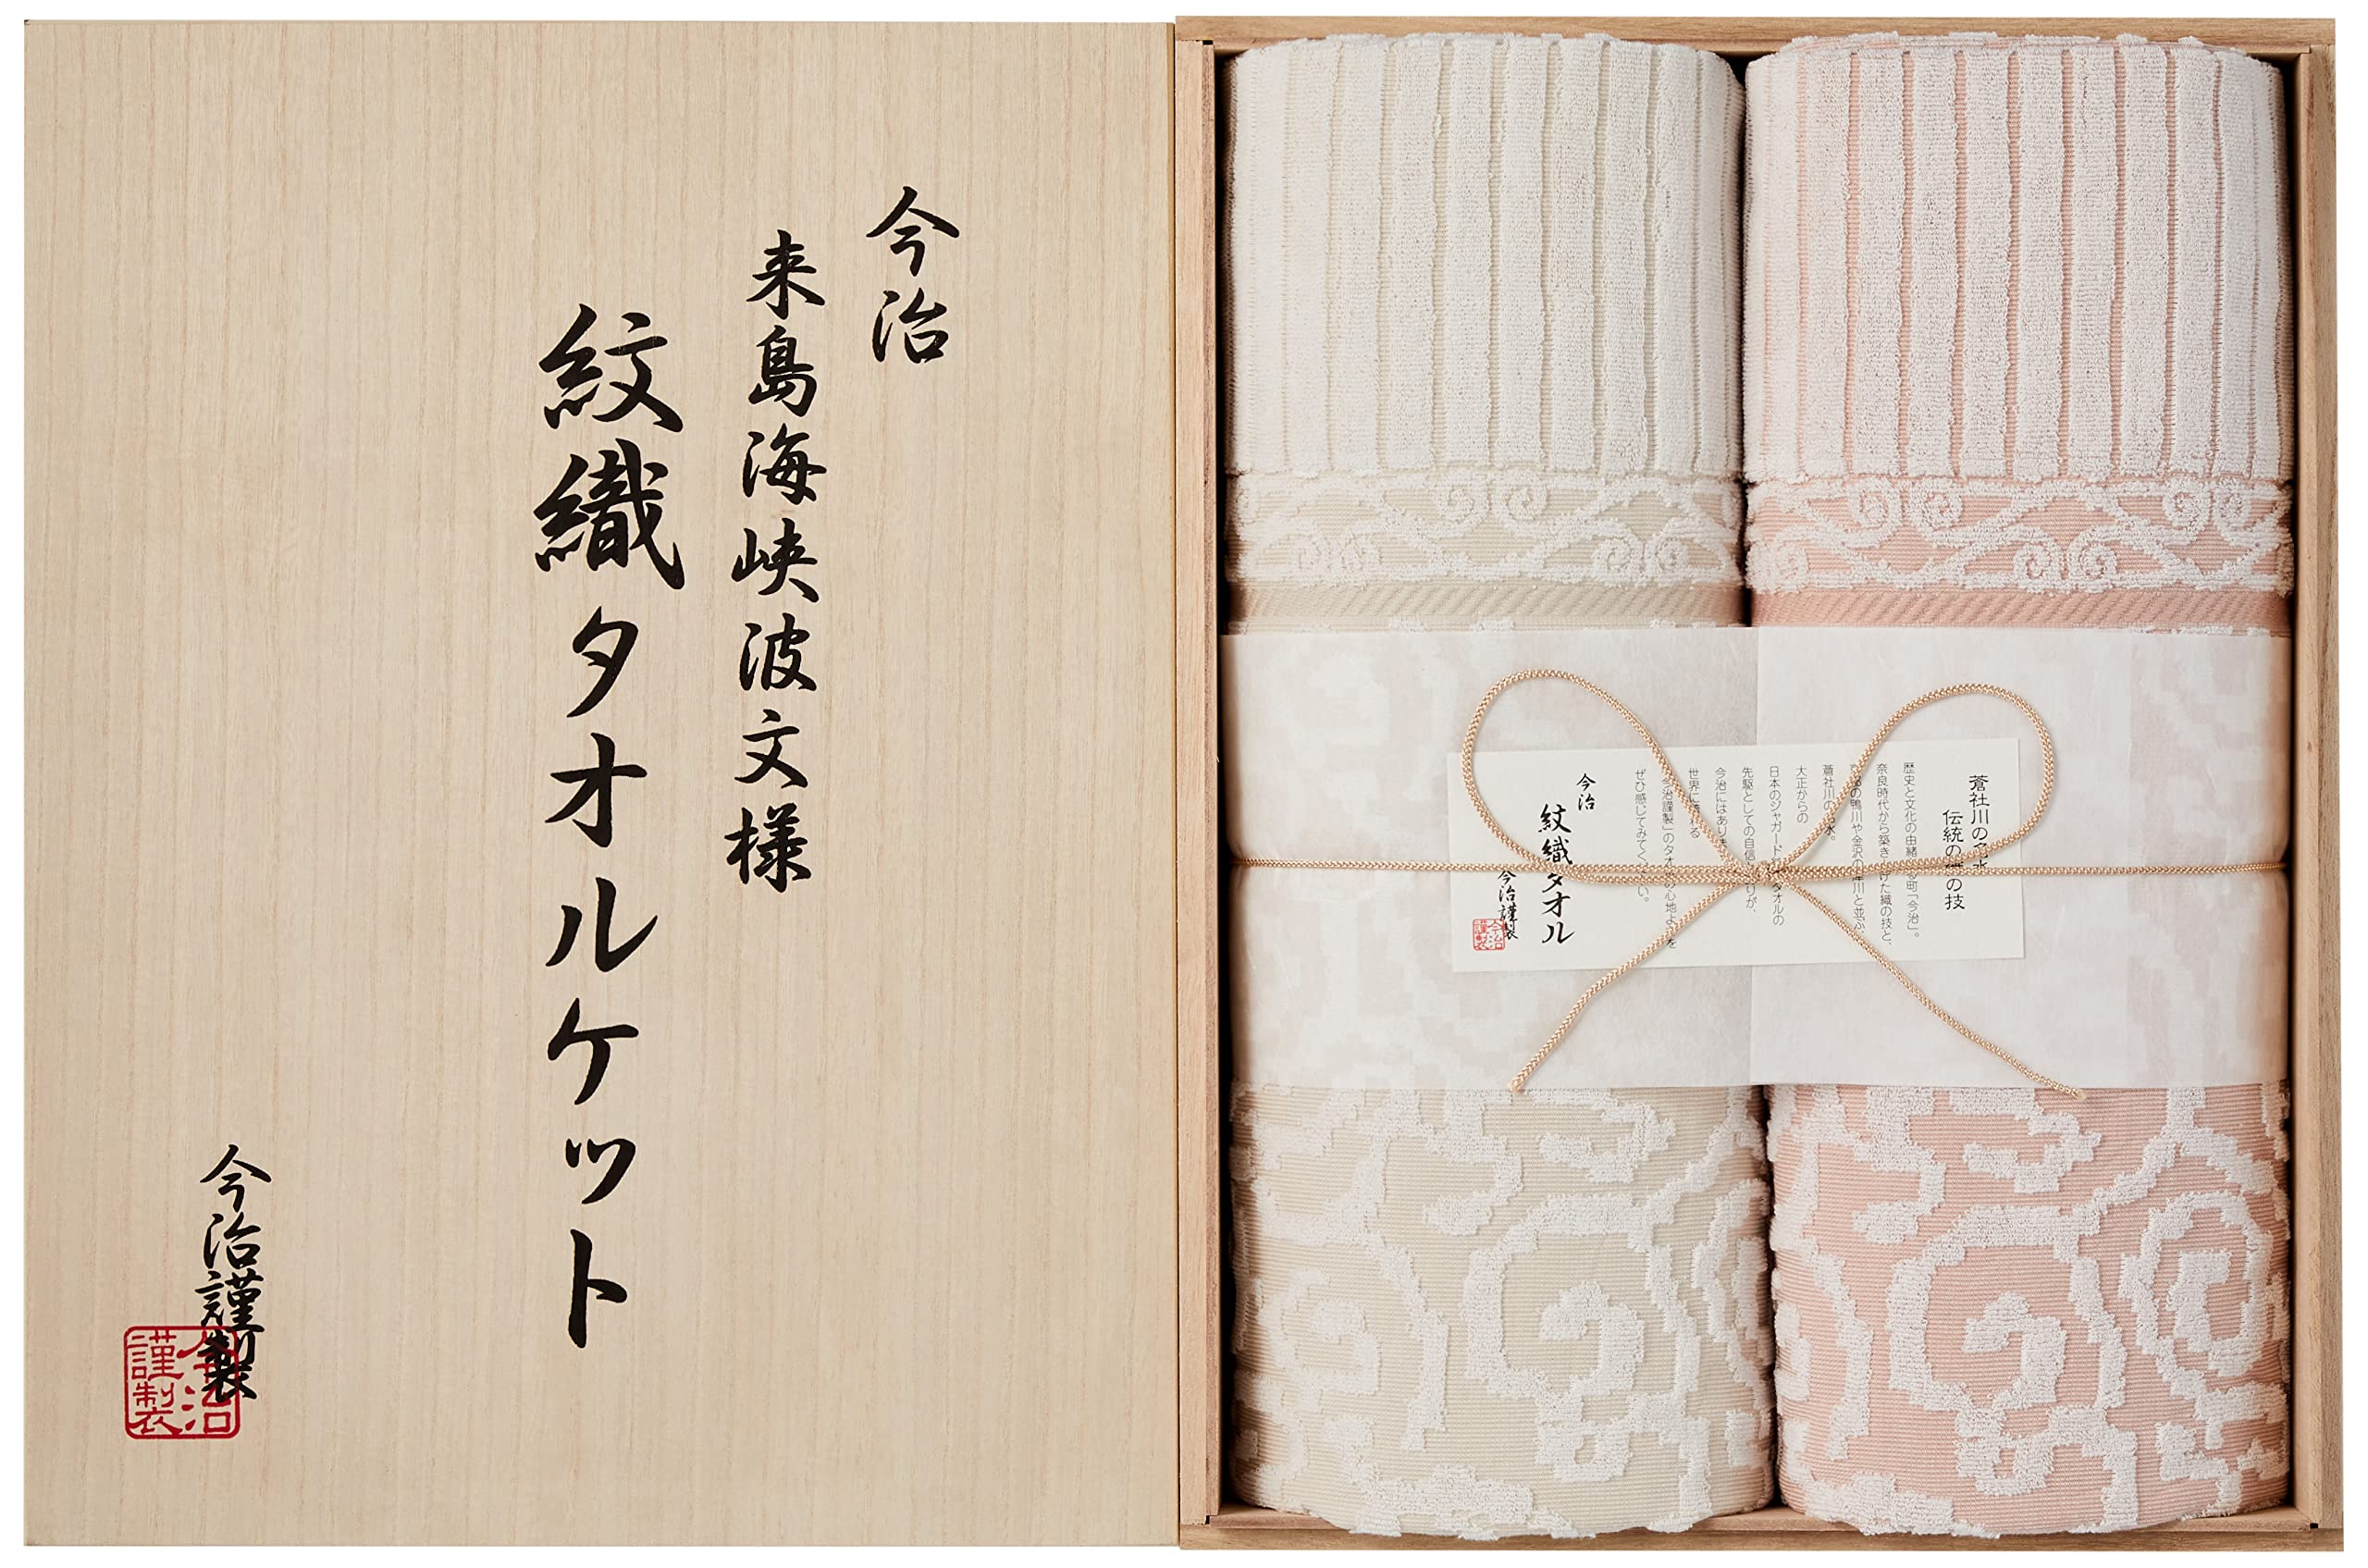 今治
来島海峡波文様
紋織タオルケット
今治謹製
今治
謹製
蒼社川の名水
伝統の の技
歴史と文化の由緒 る町「今治」。
奈良時代から築き げた織の技と、
の鴨川や金沢の 川と並ぶ、
蒼社川の 水。
大正からの
日本のジャガード タオルの
先駆としての自信 りが、
今治にはあり
世界に れる
今治謹製」のタオ の心地よ を
ぜひ感じてみてく い。
今治
紋織タオル
今治謹製
今治
謹製